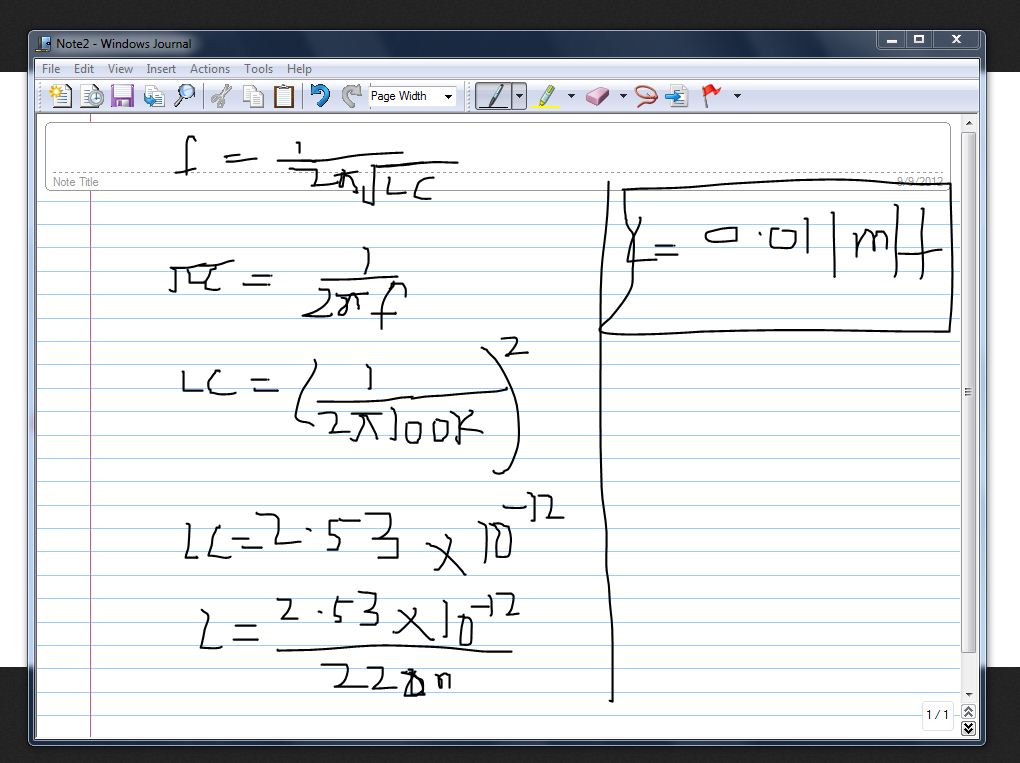 Note2 - Windows Journal
File Edit View Insert Actions Tools Help
Page Width
Note Title
9/9/2012
f = 1/(2π√LC)
√LC = 1/(2πf)
LC = (1/(2π100K))²
LC = 2.53 × 10⁻¹²
L = (2.53 × 10⁻¹²)/(220n)
L = 0.011mH
1 / 1